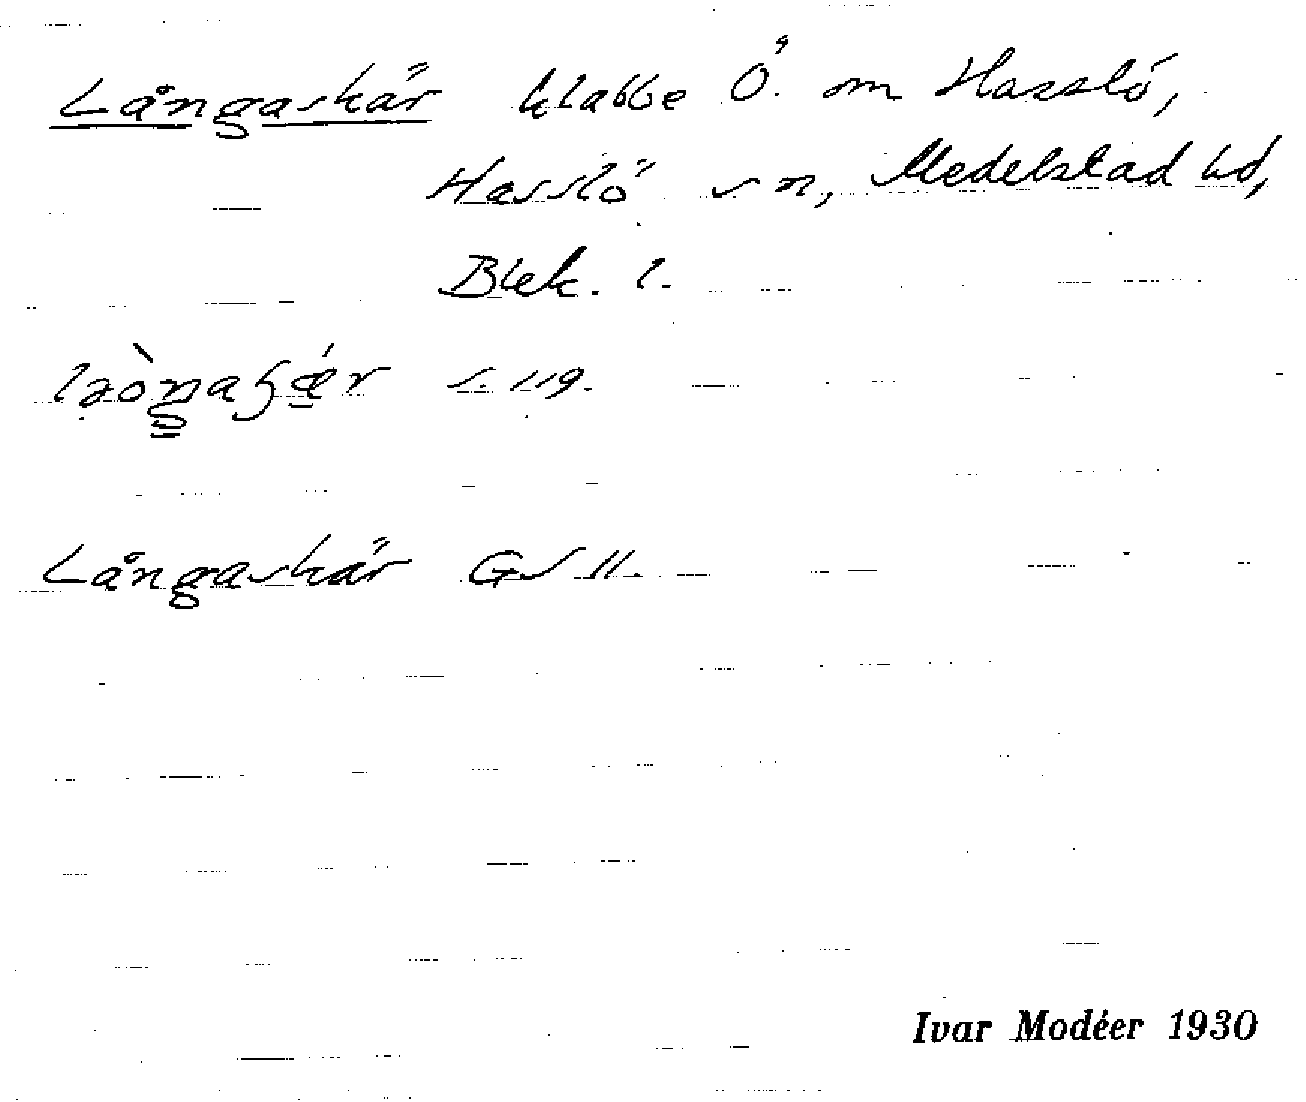 Långaskär klabbe Ö. om Hasslö,
Hasslö sn, Medelstad hd,
Blek. l.
s. 119.
Långaskär GS 11.
Ivar Modéer 1930